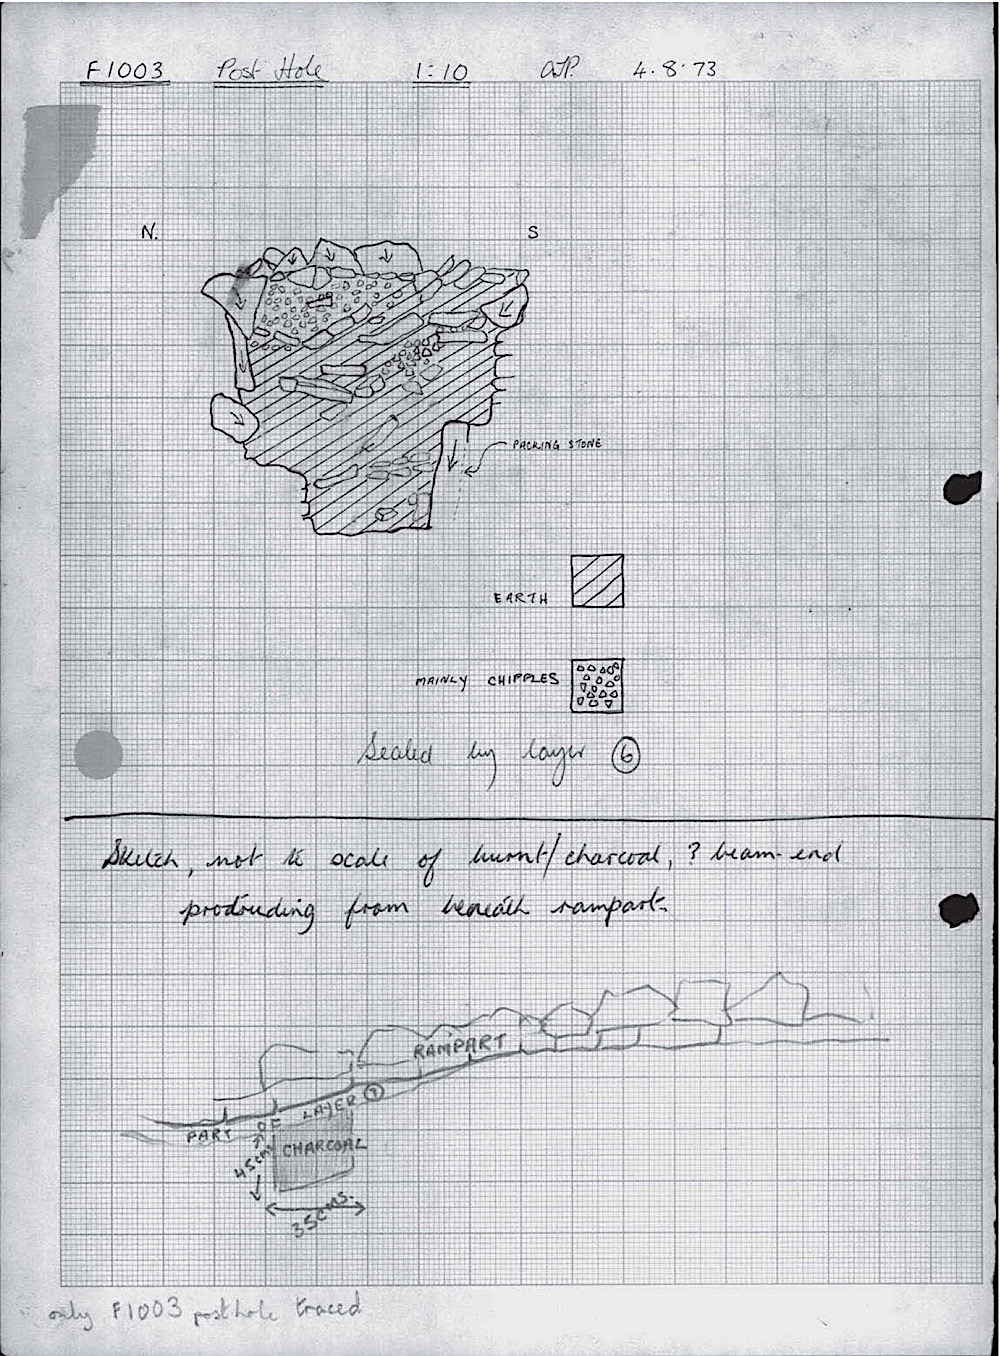 F1003 Post Hole 1:10 A.J.P. 4.8.73
N. S
PACKING STONE
EARTH
MAINLY CHIPPLES
Sealed by layer 6
Sketch, not to scale of burnt/charcoal, ? beam-end
protruding from beneath rampart.
RAMPART
PART OF LAYER 7
CHARCOAL
45cms
35cms.
only F1003 posthole traced